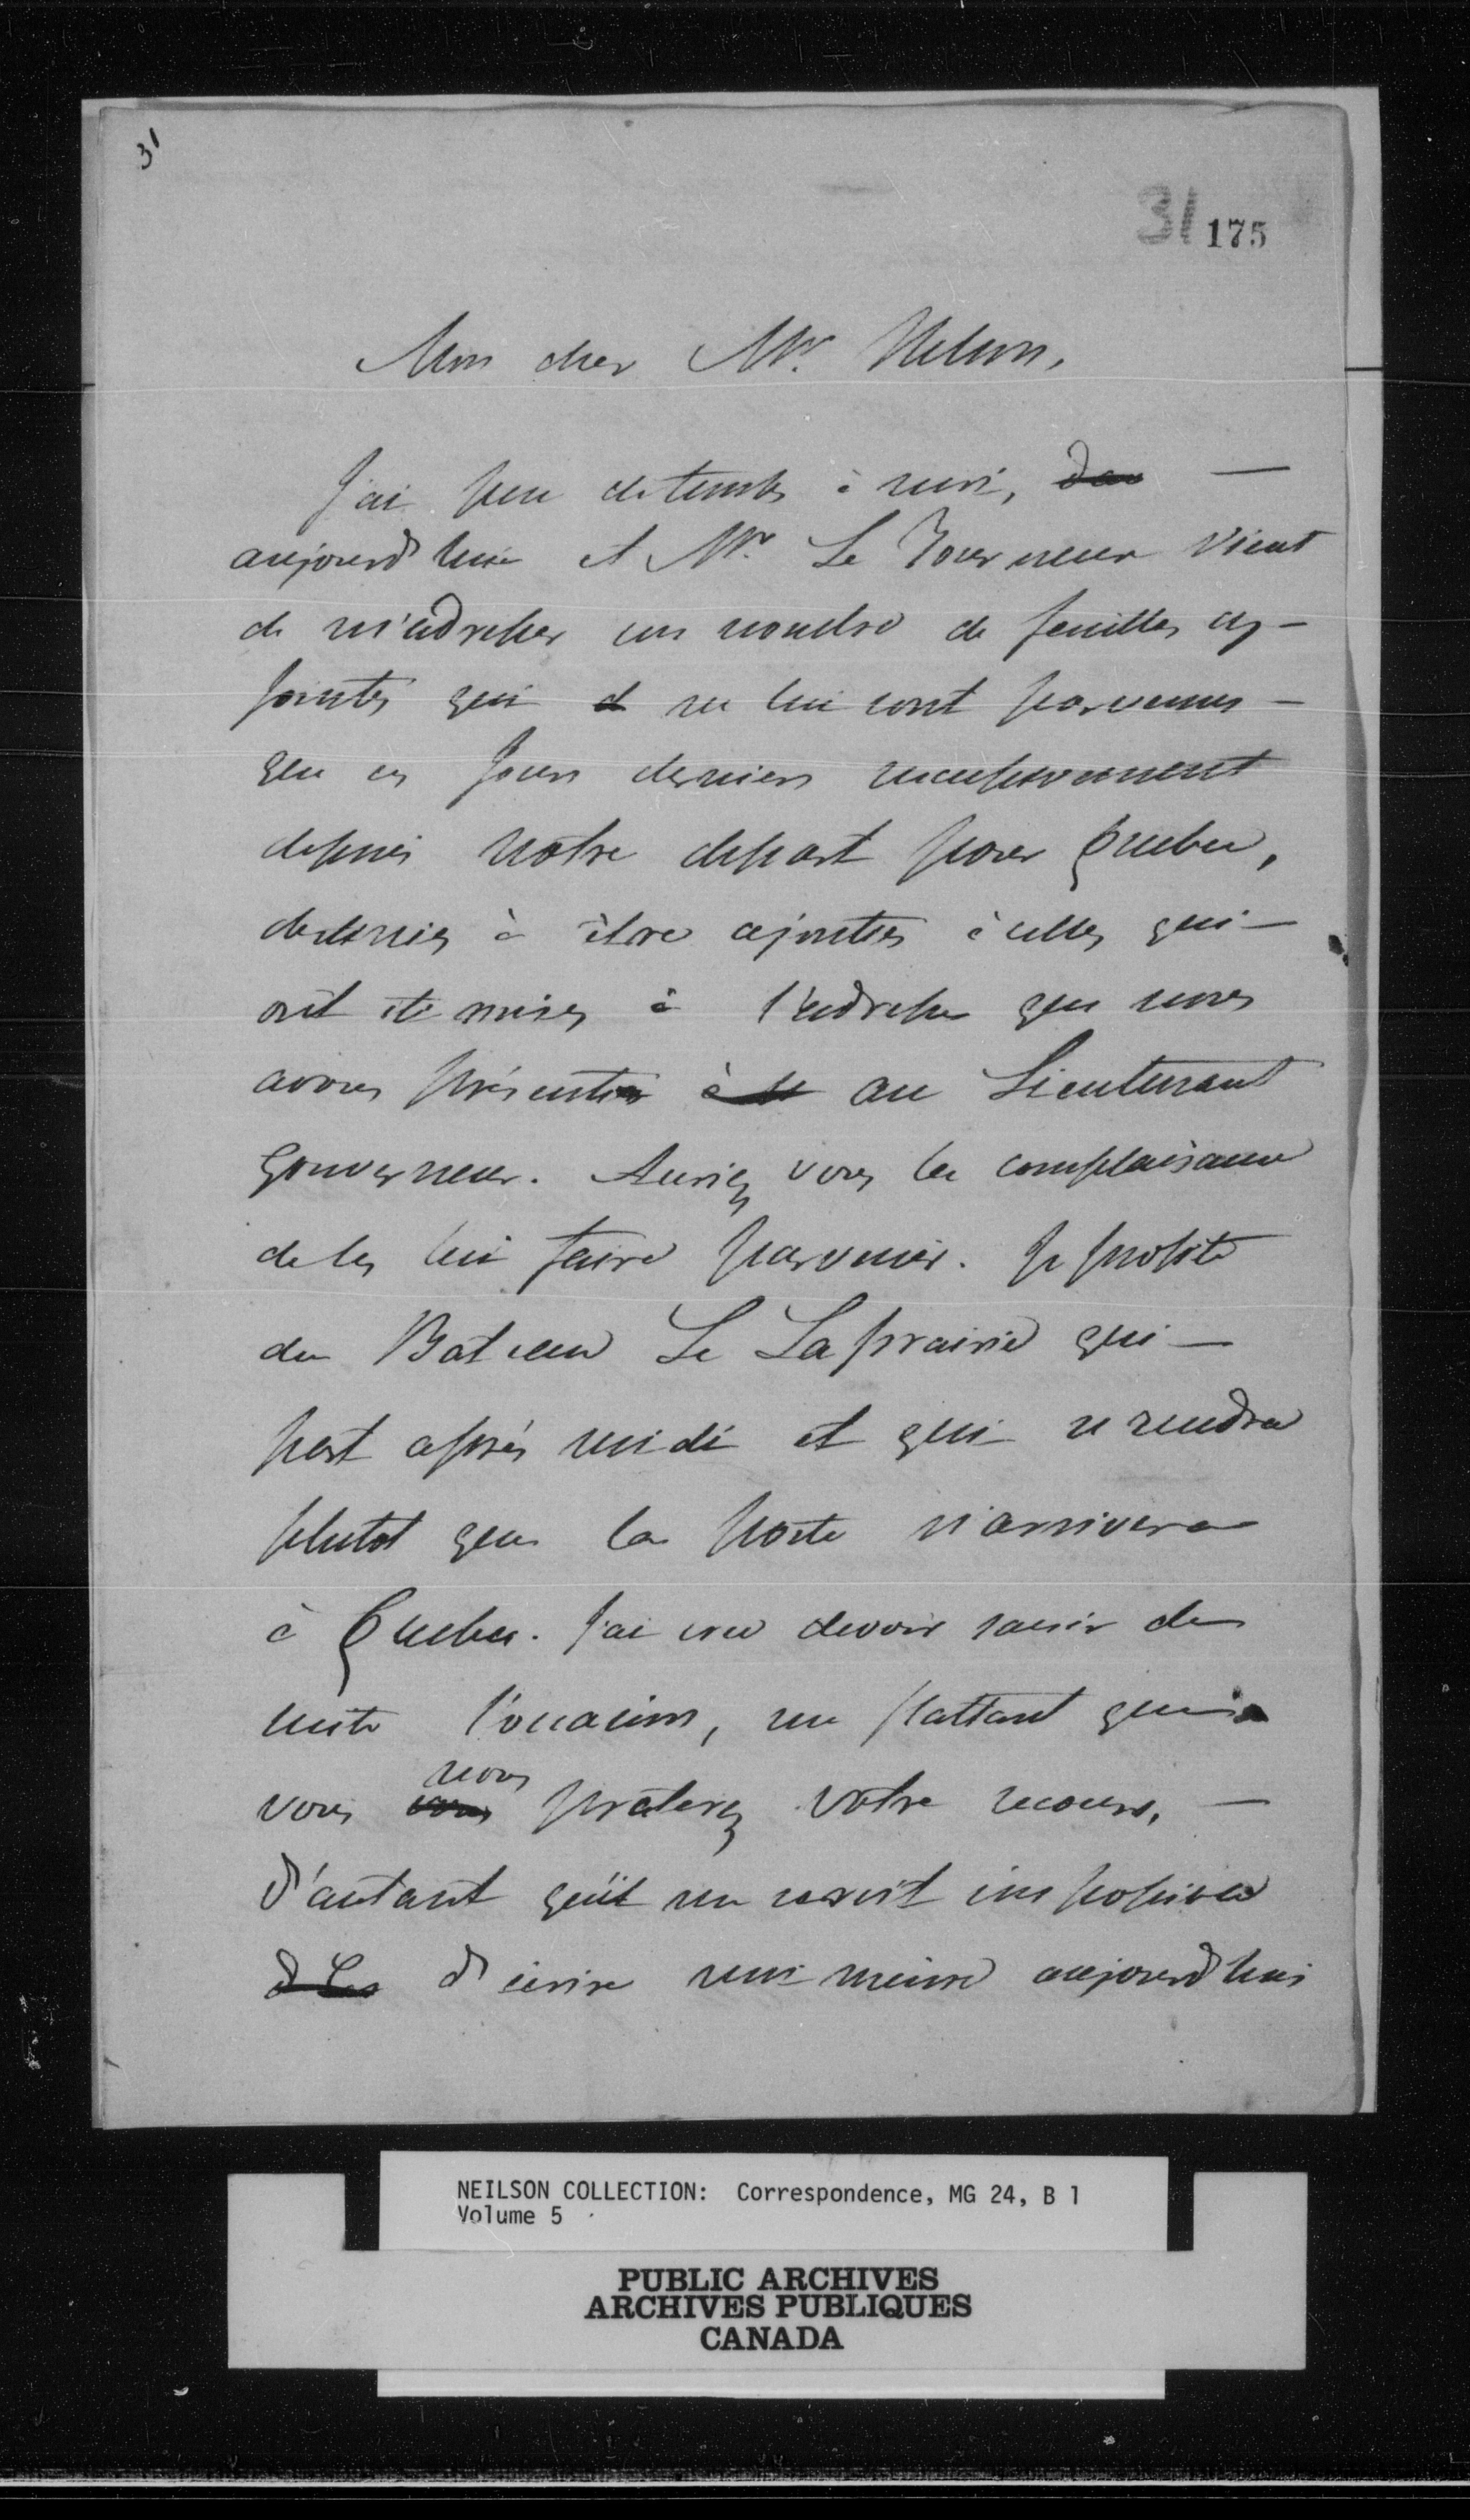 31
31 175
Mon cher Mr. Nelson,
J'ai peu de temps à moi, —
aujourd'hui et Mr. Le Tourneux vient
de m'adresser un nombre de feuilles cy-
jointes qui ne lui sont parvenues —
que ces jours derniers successivement
depuis notre depart pour Quebec,
destinées à être ajoutées à celles qui —
ont été mises à l'adresse que nous
avons présentée au Lieutenant
Gouverneur. Auriez vous la complaisance
de les lui faire parvenir. Je profite
du Bateau Le Laprairie qui —
part après midi et qui se rendra
plutot que la poste n'arrivera
à Quebec. J'ai cru devoir saisir de
suite l'occasion, me flattant que
vous nous prêterez votre secours, —
d'autant qu'il me seroit impossible
d'écrire moi meme aujourd'hui
NEILSON COLLECTION: Correspondence, MG 24, B 1
Volume 5
PUBLIC ARCHIVES
ARCHIVES PUBLIQUES
CANADA